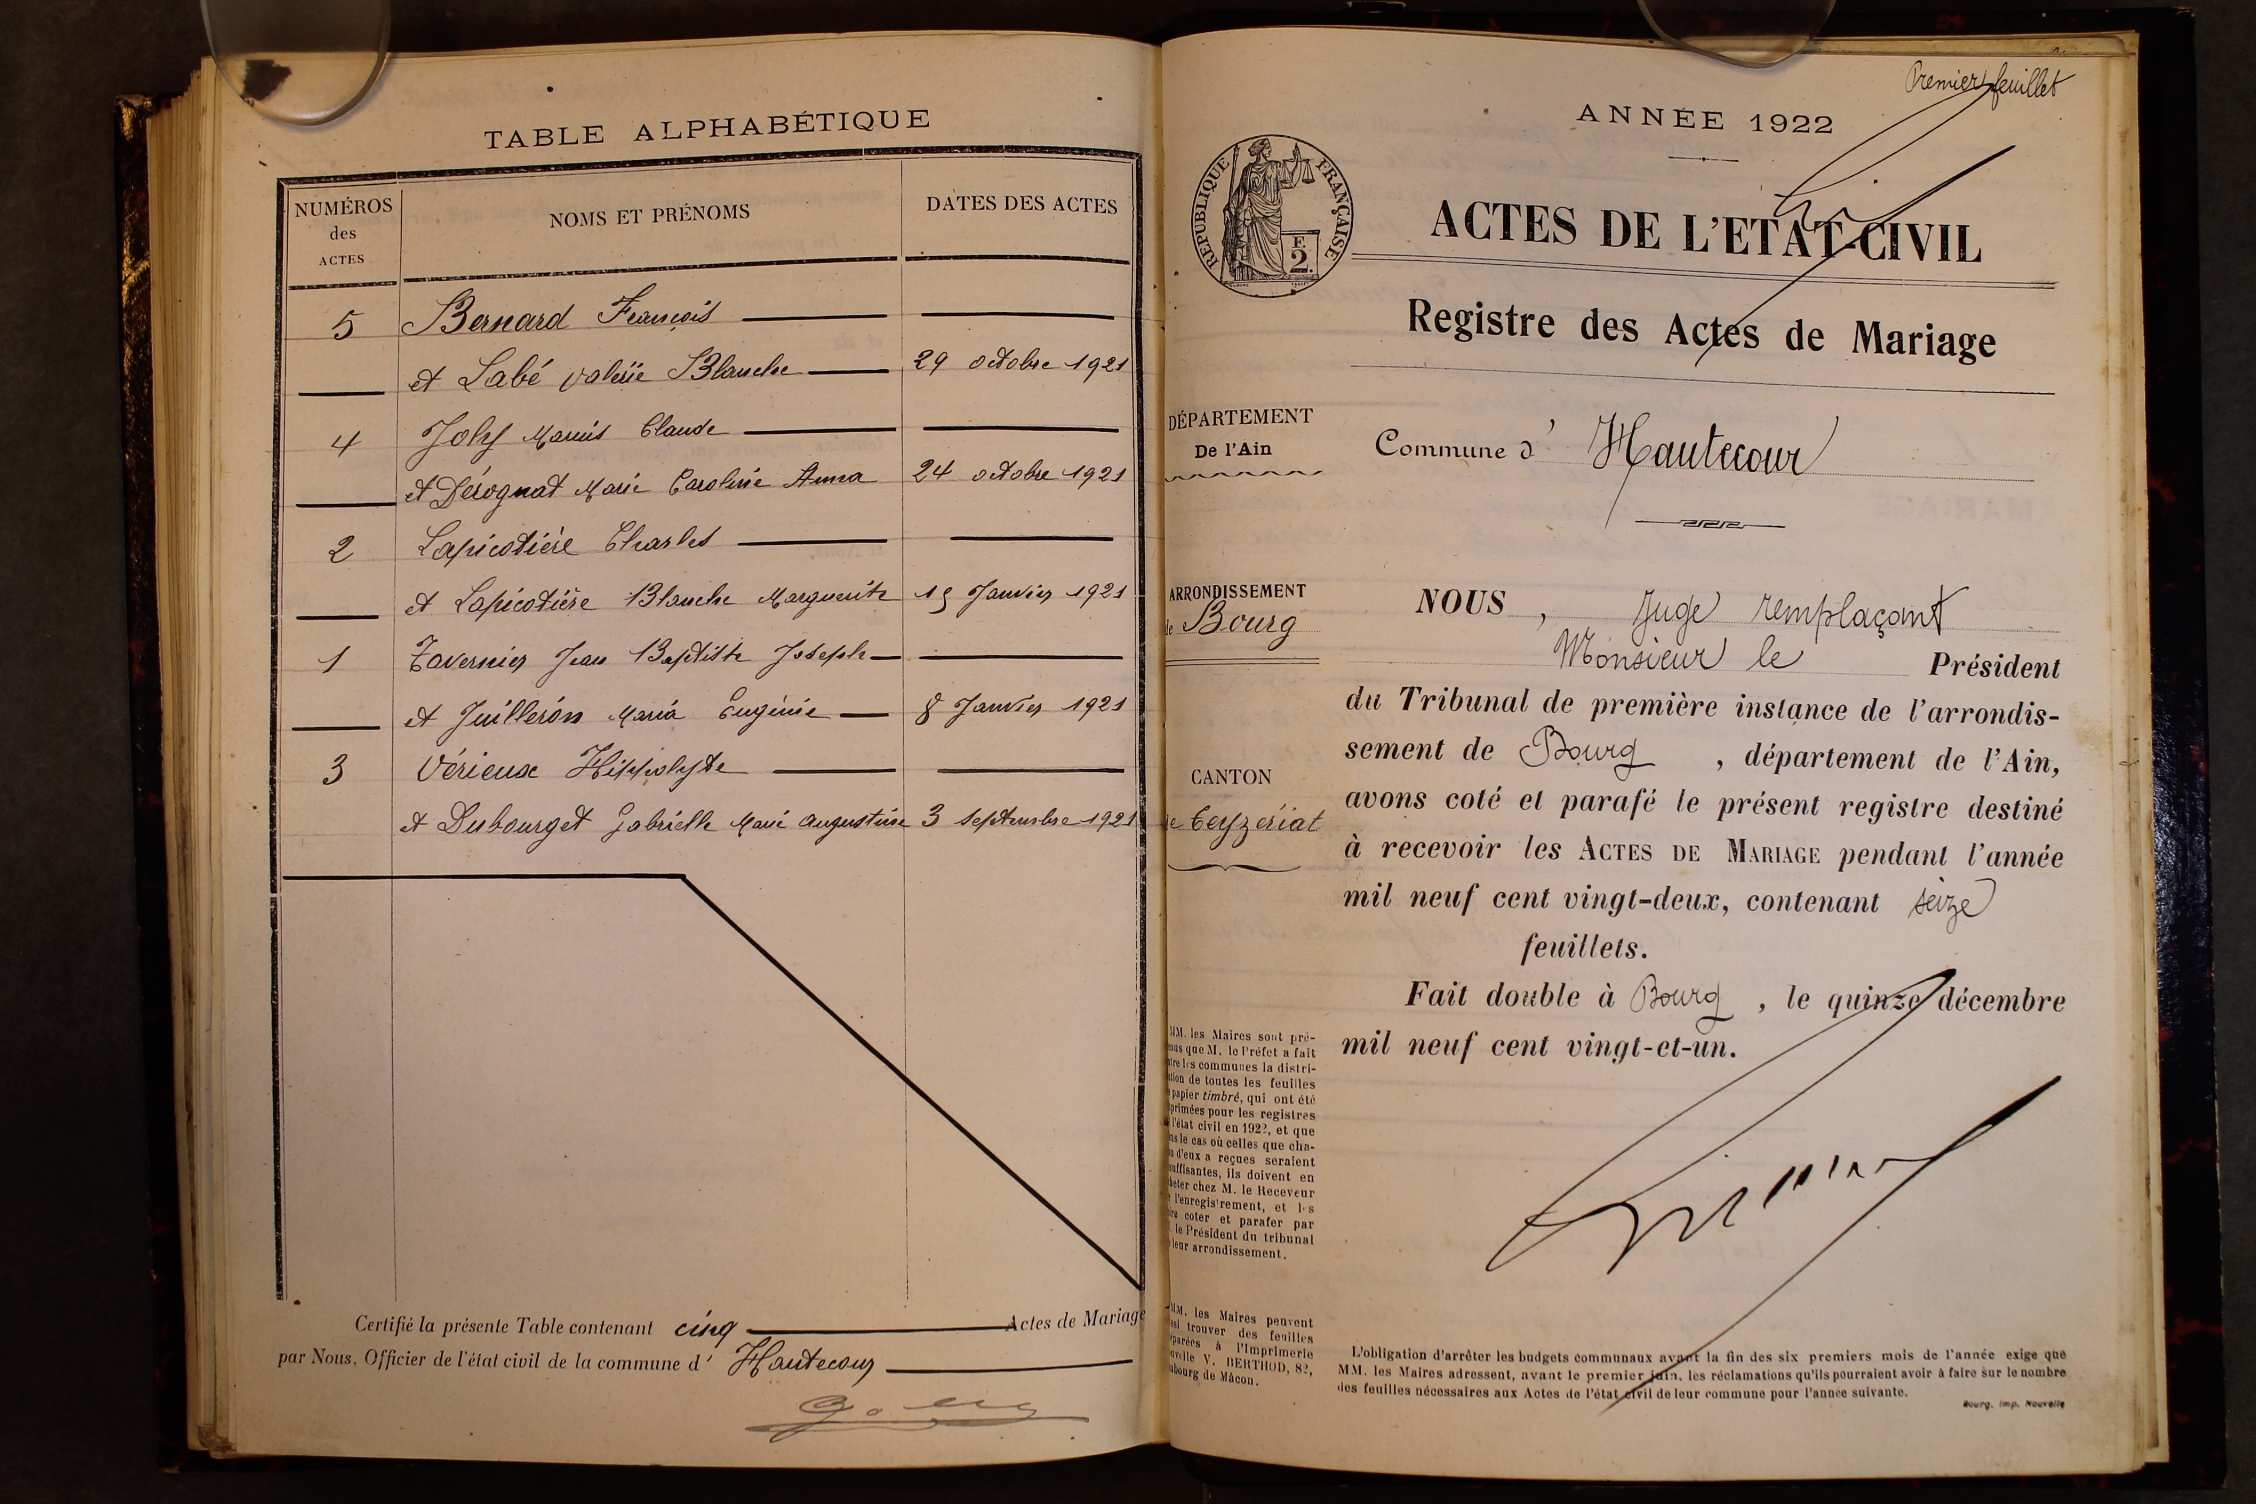 TABLE ALPHABÉTIQUE
NUMÉROS
des
ACTES
NOMS ET PRÉNOMS
DATES DES ACTES
5 Bernard François
et Labé Valérie Blanche 29 octobre 1921
4 Joly Marius Claude
et Dérognat Marie Caroline Anna 24 octobre 1921
2 Lapicotière Charles
et Lapicotière Blanche Marguerite 15 Janvier 1921
1 Tavernier Jean Baptiste Joseph
et Juilleron Maria Eugénie 8 Janvier 1921
3 Vérieux Hippolyte
et Dubourget Gabrielle Marie Augustine 3 septembre 1921
Certifié la présente Table contenant cinq Actes de Mariage
par Nous, Officier de l'état civil de la commune d' Hautecour
Premier feuillet
ANNÉE 1922
RÉPUBLIQUE FRANÇAISE
F.
2.
ACTES DE L'ETAT-CIVIL
Registre des Actes de Mariage
DÉPARTEMENT
De l'Ain
Commune d' Hautecour
ARRONDISSEMENT
de Bourg
CANTON
de Ceyzériat
NOUS, Juge remplaçant
Monsieur le Président
du Tribunal de première instance de l'arrondis-
sement de Bourg, département de l'Ain,
avons coté et parafé le présent registre destiné
à recevoir les ACTES DE MARIAGE pendant l'année
mil neuf cent vingt-deux, contenant seize
feuillets.
Fait double à Bourg, le quinze décembre
mil neuf cent vingt-et-un.
MM. les Maires sont pré-
que M. le Préfet a fait
les communes la distri-
de toutes les feuilles
papier timbré, qui ont été
pour les registres
l'état civil en 1922, et que
le cas où celles que cha-
d'eux a reçues seraient
ils doivent en
chez M. le Receveur
l'enregistrement, et les
coter et parafer par
le Président du tribunal
leur arrondissement.
MM. les Maires peuvent
trouver des feuilles
à l'Imprimerie
V. BERTHOD, 82,
de Mâcon.
L'obligation d'arrêter les budgets communaux avant la fin des six premiers mois de l'année exige que
MM. les Maires adressent, avant le premier juin, les réclamations qu'ils pourraient avoir à faire sur le nombre
des feuilles nécessaires aux Actes de l'état civil de leur commune pour l'année suivante.
Bourg, Imp. Nouvelle